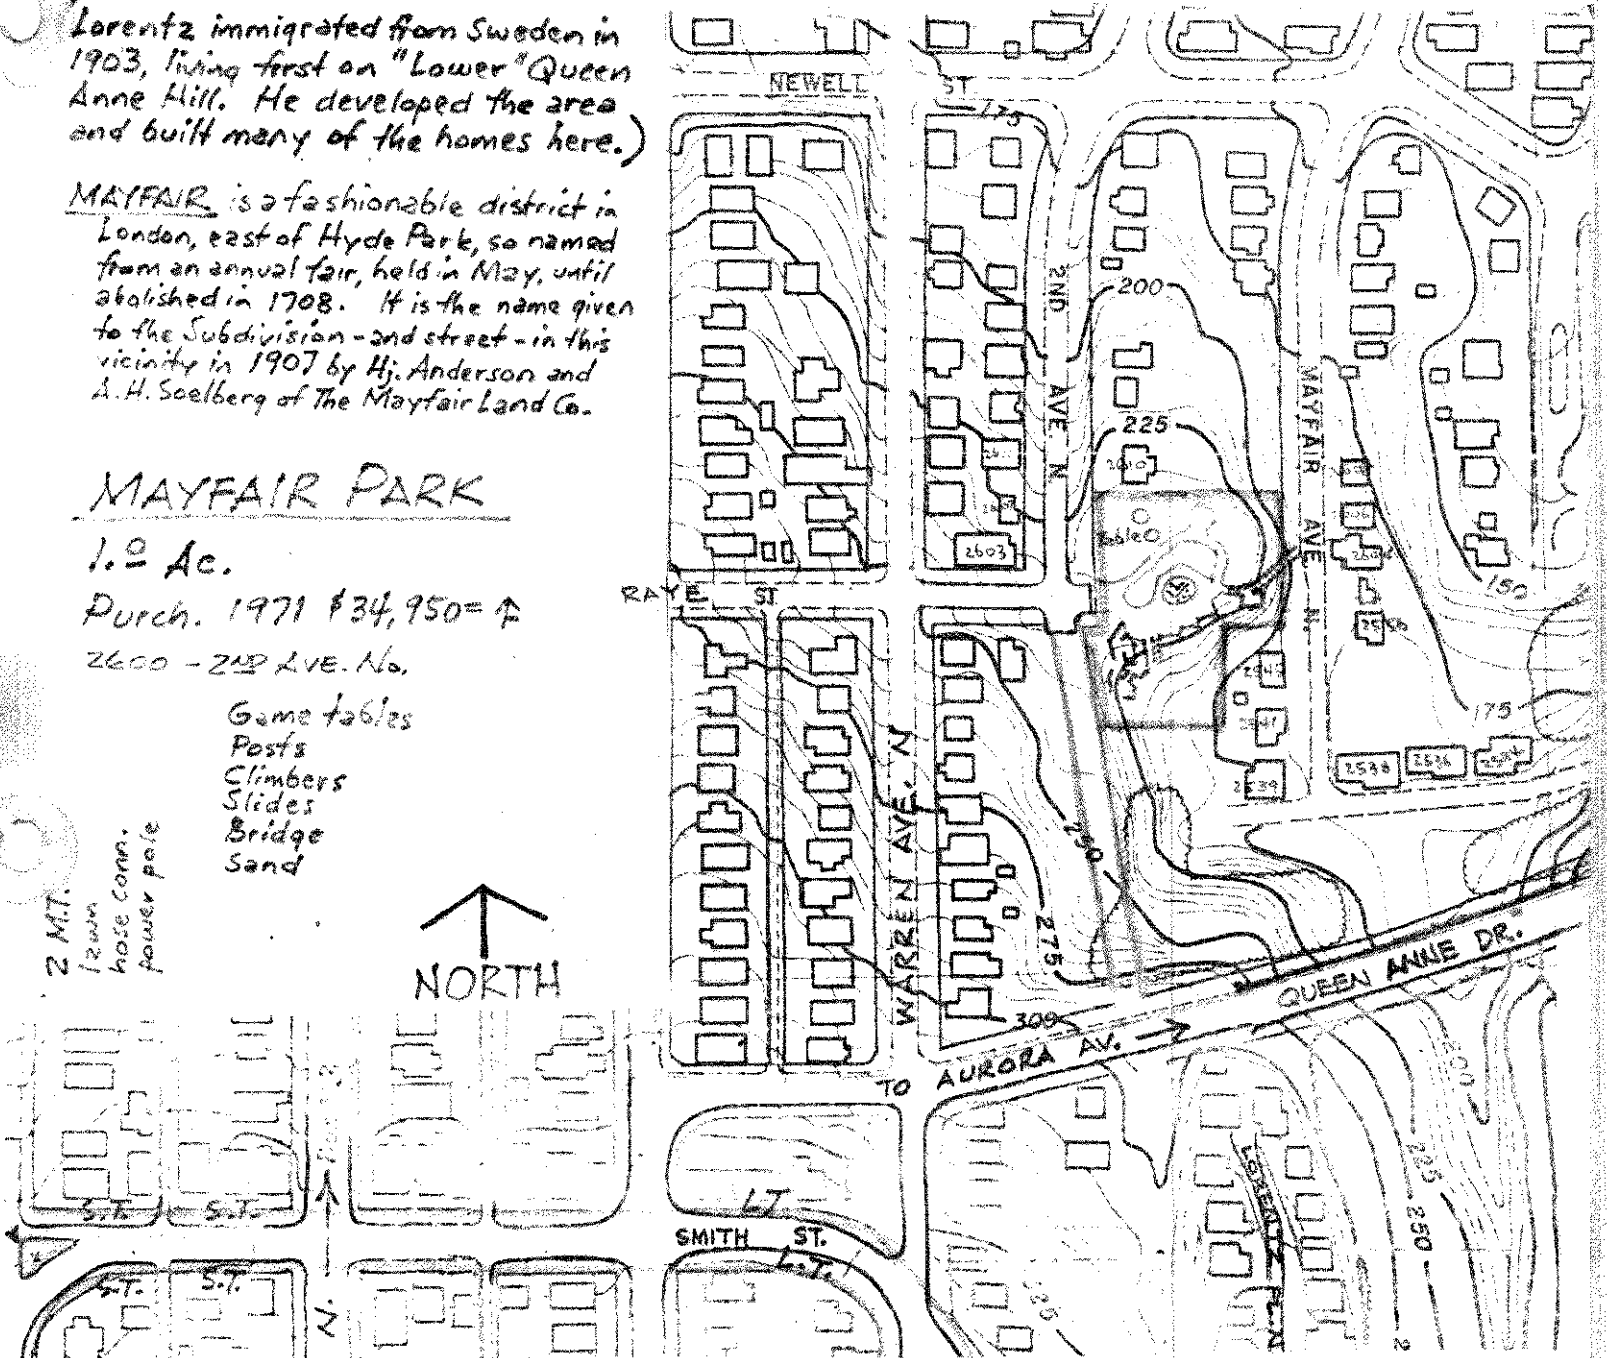 Lorentz immigrated from Sweden in
1903, living first on "Lower" Queen
Anne Hill. He developed the area
and built many of the homes here.)
MAYFAIR is a fashionable district in
London, east of Hyde Park, so named
from an annual fair, held in May, until
abolished in 1708. It is the name given
to the Subdivision - and street - in this
vicinity in 1907 by Hj. Anderson and
A. H. Soelberg of The Mayfair Land Co.
MAYFAIR PARK
1.0 Ac.
Purch. 1971 $34,950= ↑
2600 - 2ND AVE. No.
Game tables
Posts
Climbers
Slides
Bridge
Sand
2 M.T.
lawn
hose conn.
power pole
NORTH
NEWELL ST.
175
2ND AVE N
200
225
MAYFAIR AVE N.
2610
2603
RAYE ST
150
175
2543
2541
2539
2538
2536
WARREN AVE. N
250
275
309
QUEEN ANNE DR.
TO AURORA AV. →
200
225
250
LORENTZ PL. N
S.T. S.T.
L.T.
SMITH ST.
L.T.
S.T. S.T.
N.
225